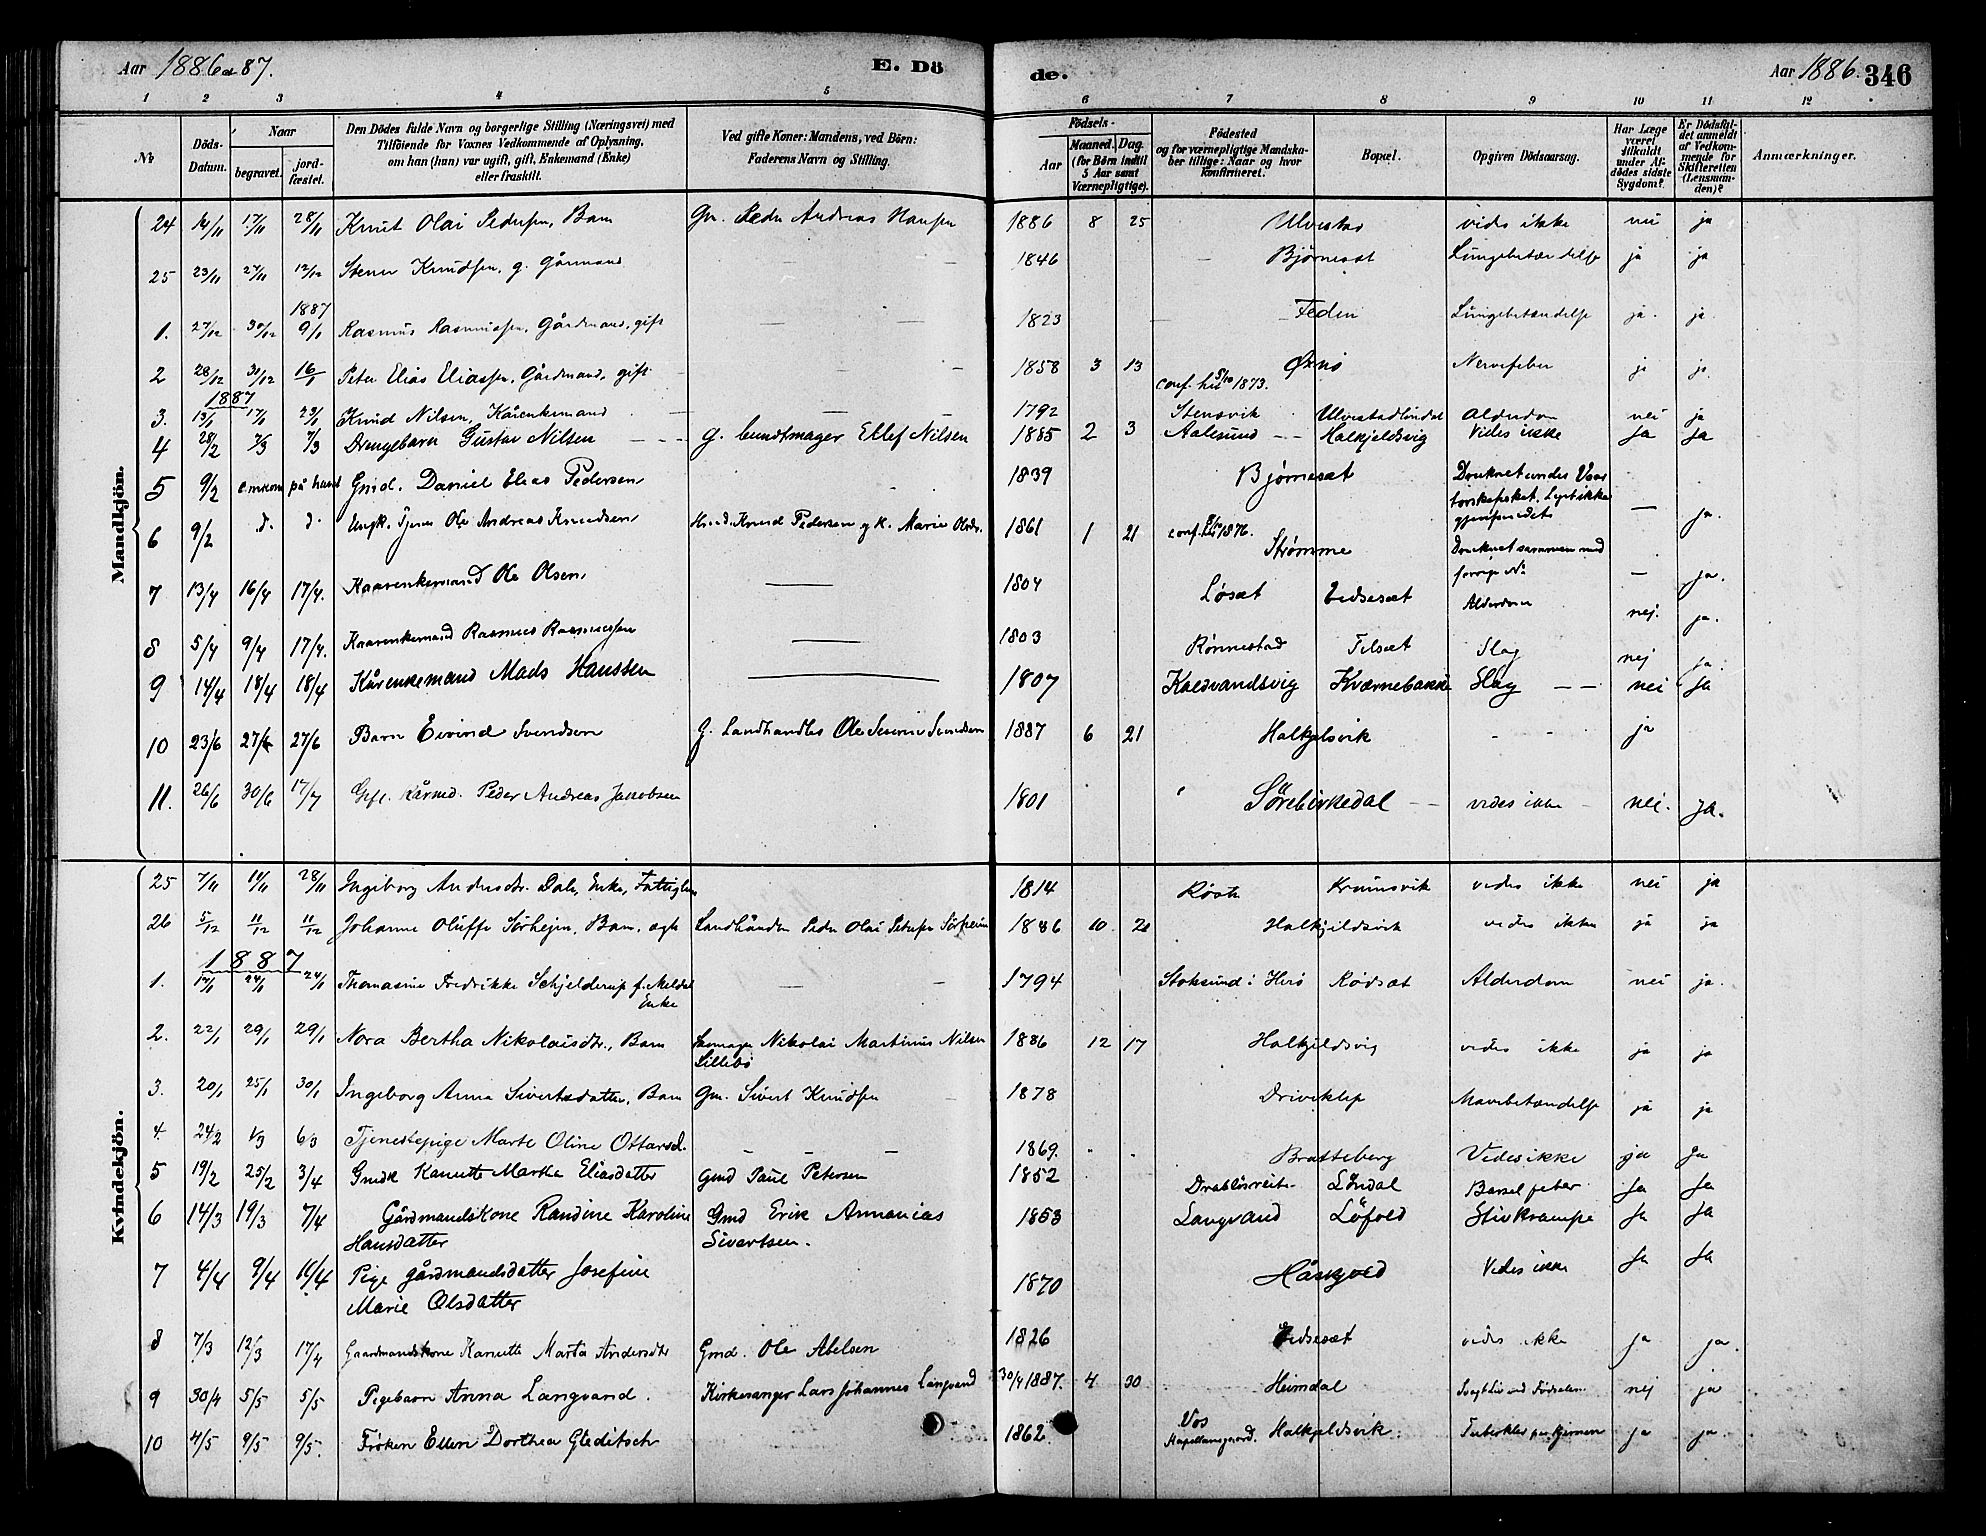 Aar 1886 & 87.
E. Dö
de.
Aar 1886. 346
1 2 3 4 5 6 7 8 9 10 11 12
No
Döds-Datum.
Naar
begravet.
jordfæstet.
Den Dödes fulde Navn og borgerlige Stilling (Næringsvei) med
Tilföiende for Voxnes Vedkommende af Oplysning,
om han (hun) var ugift, gift, Enkemand (Enke)
eller fraskilt.
Ved gifte Koner: Mandens, ved Börn:
Faderens Navn og Stilling.
Födsels-
Aar
Maaned. Dag.
(for Börn indtil
5 Aar samt
Værnepligtige).
Födested
og for værnepligtige Mandskaber tillige: Naar og hvor
konfirmeret.
Bopæl.
Opgiven Dödsaarsag.
Har Læge været tilkaldt under Afdödes sidste Sygdom?
Er Dödsfaldet anmeldt af Vedkommende for Skifteretten (Lensmanden)?
Anmærkninger.
Mandkjön.
24 14/11 17/11 28/11 Knut Olai Pedersen, Barn Gm. Peder Andreas Hansen 1886 8 25 Ulvestad vides ikke nei ja
25 23/11 27/11 12/12 Stener Knudsen, g. Gårmand 1846 Bjørnesæt Lungebetændelse ja ja
1887
1. 27/12 30/12 9/1 Rasmus Rasmussen, Gårdmand, gift 1823 Feden Lungebetændelse ja. ja.
2 28/12 30/12 16/1 Peter Elias Eliassen, Gårdmand, gift 1858 3 13 Øxnö Nervefeber ja ja
conf. her 5/10 1873.
1887
3. 13/1 17/1 23/1 Knud Nilsen, Kårenkemand 1792 Stensvik Ulvestadlindal Alderdom nei ja
4 28/2 7/3 7/3 Drengebarn Gustav Nilsen g. Bundtmager Ellef Nilsen 1885 2 3 Aalesund Halkjeldsvig Vides ikke Ja Ja
5 9/2 omkom på havet Gmd. Daniel Elias Pedersen 1839 Bjørnesæt Druknet under Vaartorskefisket. Liget ikke gjenfundet
6 9/2 d. d. Ungk. Tjener Ole Andreas Knudsen Knud Pedersen g k. Marie Olsdr. 1861 1 21 conf. 1876. Strømme Druknet sammen med forrige No ja.
7 13/4 16/4 17/4. Kaarenkemand Ole Olsen 1804 Løsæt Eidsesæt Alderdom nej. ja.
8 5/4 9/4 17/4. Kaarenkemand Rasmus Rasmussen 1803 Rønnestad Tilsæt Slag nej ja.
9 14/4 18/4 18/4 Kårenkemand Mads Hanssen 1807 Kaldvandsvig Kværnebakke Slag nei Ja
10 23/6 27/6 27/6 Barn Eivind Svendsen G. Landhandler Ole Severin Svendsen 1887 6 21 Halkjelsvik ja
11. 26/6 30/6 17/7 Gift. kårmd. Peder Andreas Jakobsen 1801 Sörebirkedal vides ikke nei. ja.
Kvindekjön.
25 7/11 14/11 28/11 Ingiborg Andersdtr. Dale, Enke, Fattiglem 1814 Røste Krumsvik vides ikke nei ja
26 5/12 11/12 11/12 Johanne Oluffe Sörheim, Barn, ægte Landhandler Peder Olai Petersen Sörheim 1886 10 20 Halkjeldsvik vides ikke ja ja
1887
1. 17/1 24/1 24/1 Thomasine Fredrikke Schjelderup f. Meldal Enke 1794 Stoksund i Herö Rødsæt Alderdom nei ja.
2. 22/1 29/1 29/1 Nora Bertha Nikolaisdtr., Barn Nikolai Martinus Nilsen Lillebö 1886 12 17 Halkjeldsvig vides ikke ja ja
3. 20/1 25/1 30/1 Ingeborg Anna Sivertsdatter, Barn Gm. Sivert Knudsen 1878 Driveklep Mavebetændelse ja ja
4. 24/2 1/3 6/3 Tjenestepige Marte Oline Ottarsd. 1869. Bratteberg Vides ikke ja Ja
5 19/2 25/2 3/4 Gmdk Kanutte Martha Eliasdatter Gmd Paul Petersen 1852 Drabløsreite Löndal Barselfeber Ja Ja
6 14/3 19/3 7/4 Gårdmandskone Randine Karoline Hansdatter Gmd Erik Annanias Sivertsen. 1853 Langvand Löfold Stivkrampe Ja Ja
7 4/4 9/4 11/4 Pige gårdmandsdatter Josefine Marie Olsdatter 1870 Håskjold Vides ikke Ja Ja
8 7/3 12/3 17/4 Gaardmandskone Kanutte Marta Andersdtr Gmd. Ole Abelsen 1826 Eidsesæt vides ikke ja ja.
9 30/4 5/5 5/5 Pigebarn Anna Langvand. Kirkesanger Lars Johannes Langvand 30/4 1887. 4 30 Heimdal Svagt Liv ved Fødselen nej ja
10 4/5 9/5 9/5. Frøken Ellen Dorthea Gleditsch 1862 Vos Kapellangaard. Halkjeldsvik. Tuberkler paa Hjernen ja ja.